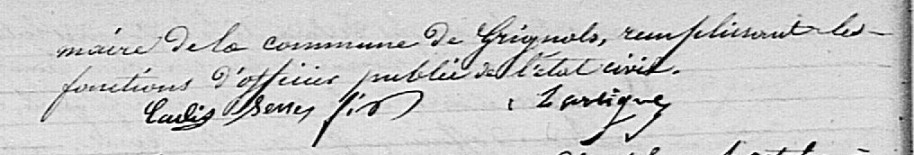 maire de la commune de Grignols, remplissant les
fonctions d'officier public de l'état civil.
Serres Lartigue